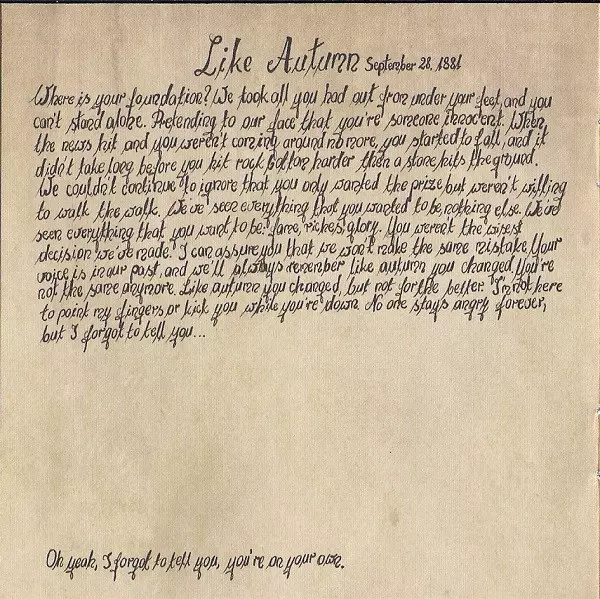 Like Autumn September 28, 1881
Where is your foundation? We took all you had out from under your feet, and you
can't stand alone. Pretending to our face that you're someone innocent. When
the news hit, and you weren't coming around no more, you started to fall, and it
didn't take long before you hit rock bottom harder then a stone hits the ground.
We couldn't continue to ignore that you only wanted the prize but weren't willing
to walk the walk. We've seen everything that you wanted to be, nothing else. We've
seen everything that you want to be: fame, riches, glory. You weren't the wisest
decision we've made. I can assure you that we won't make the same mistake. Your
voice is in our past, and we'll always remember like autumn you changed. You're
not the same anymore. Like autumn you changed, but not for the better. I'm not here
to point my fingers or kick you while you're down. No one stays angry forever,
but I forgot to tell you...
Oh yeah, I forgot to tell you, you're on your own.